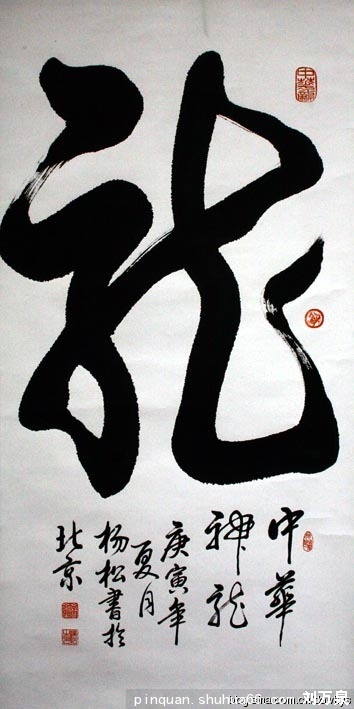 龍
中華
神龍
庚寅年
夏月
杨松書於
北京
pinquan.shuhua66.com
刘万泉